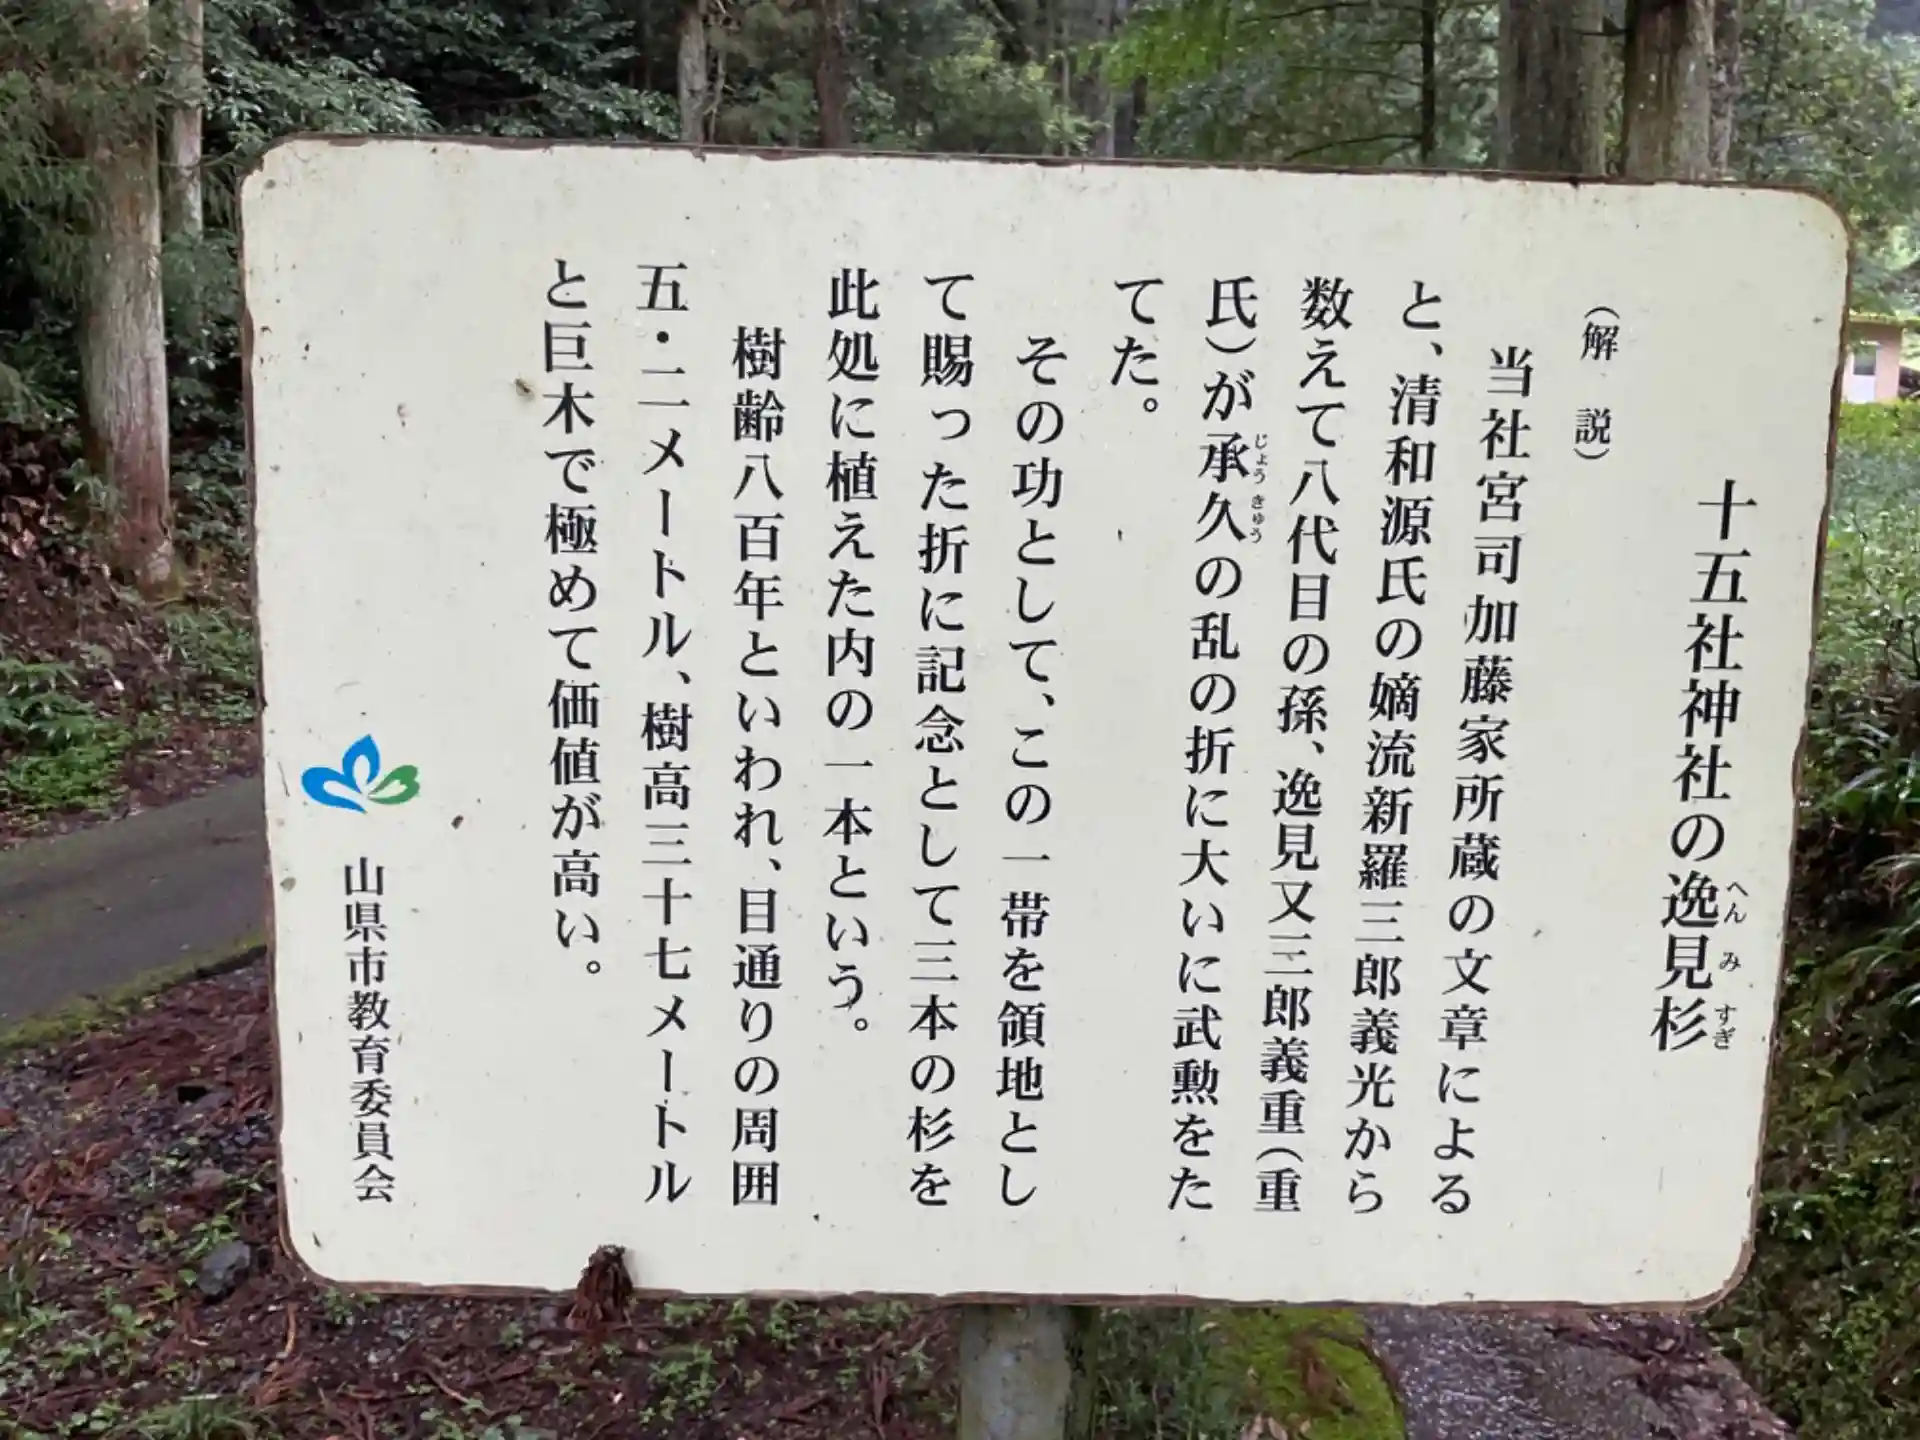 十五社神社の逸見杉
へんみすぎ
（解 説）
当社宮司加藤家所蔵の文章による
と、清和源氏の嫡流新羅三郎義光から
数えて八代目の孫、逸見又三郎義重（重
氏）が承久の乱の折に大いに武勲をた
じょうきゅう
てた。
その功として、この一帯を領地とし
て賜った折に記念として三本の杉を
此処に植えた内の一本という。
樹齢八百年といわれ、目通りの周囲
五・二メートル、樹高三十七メートル
と巨木で極めて価値が高い。
山県市教育委員会